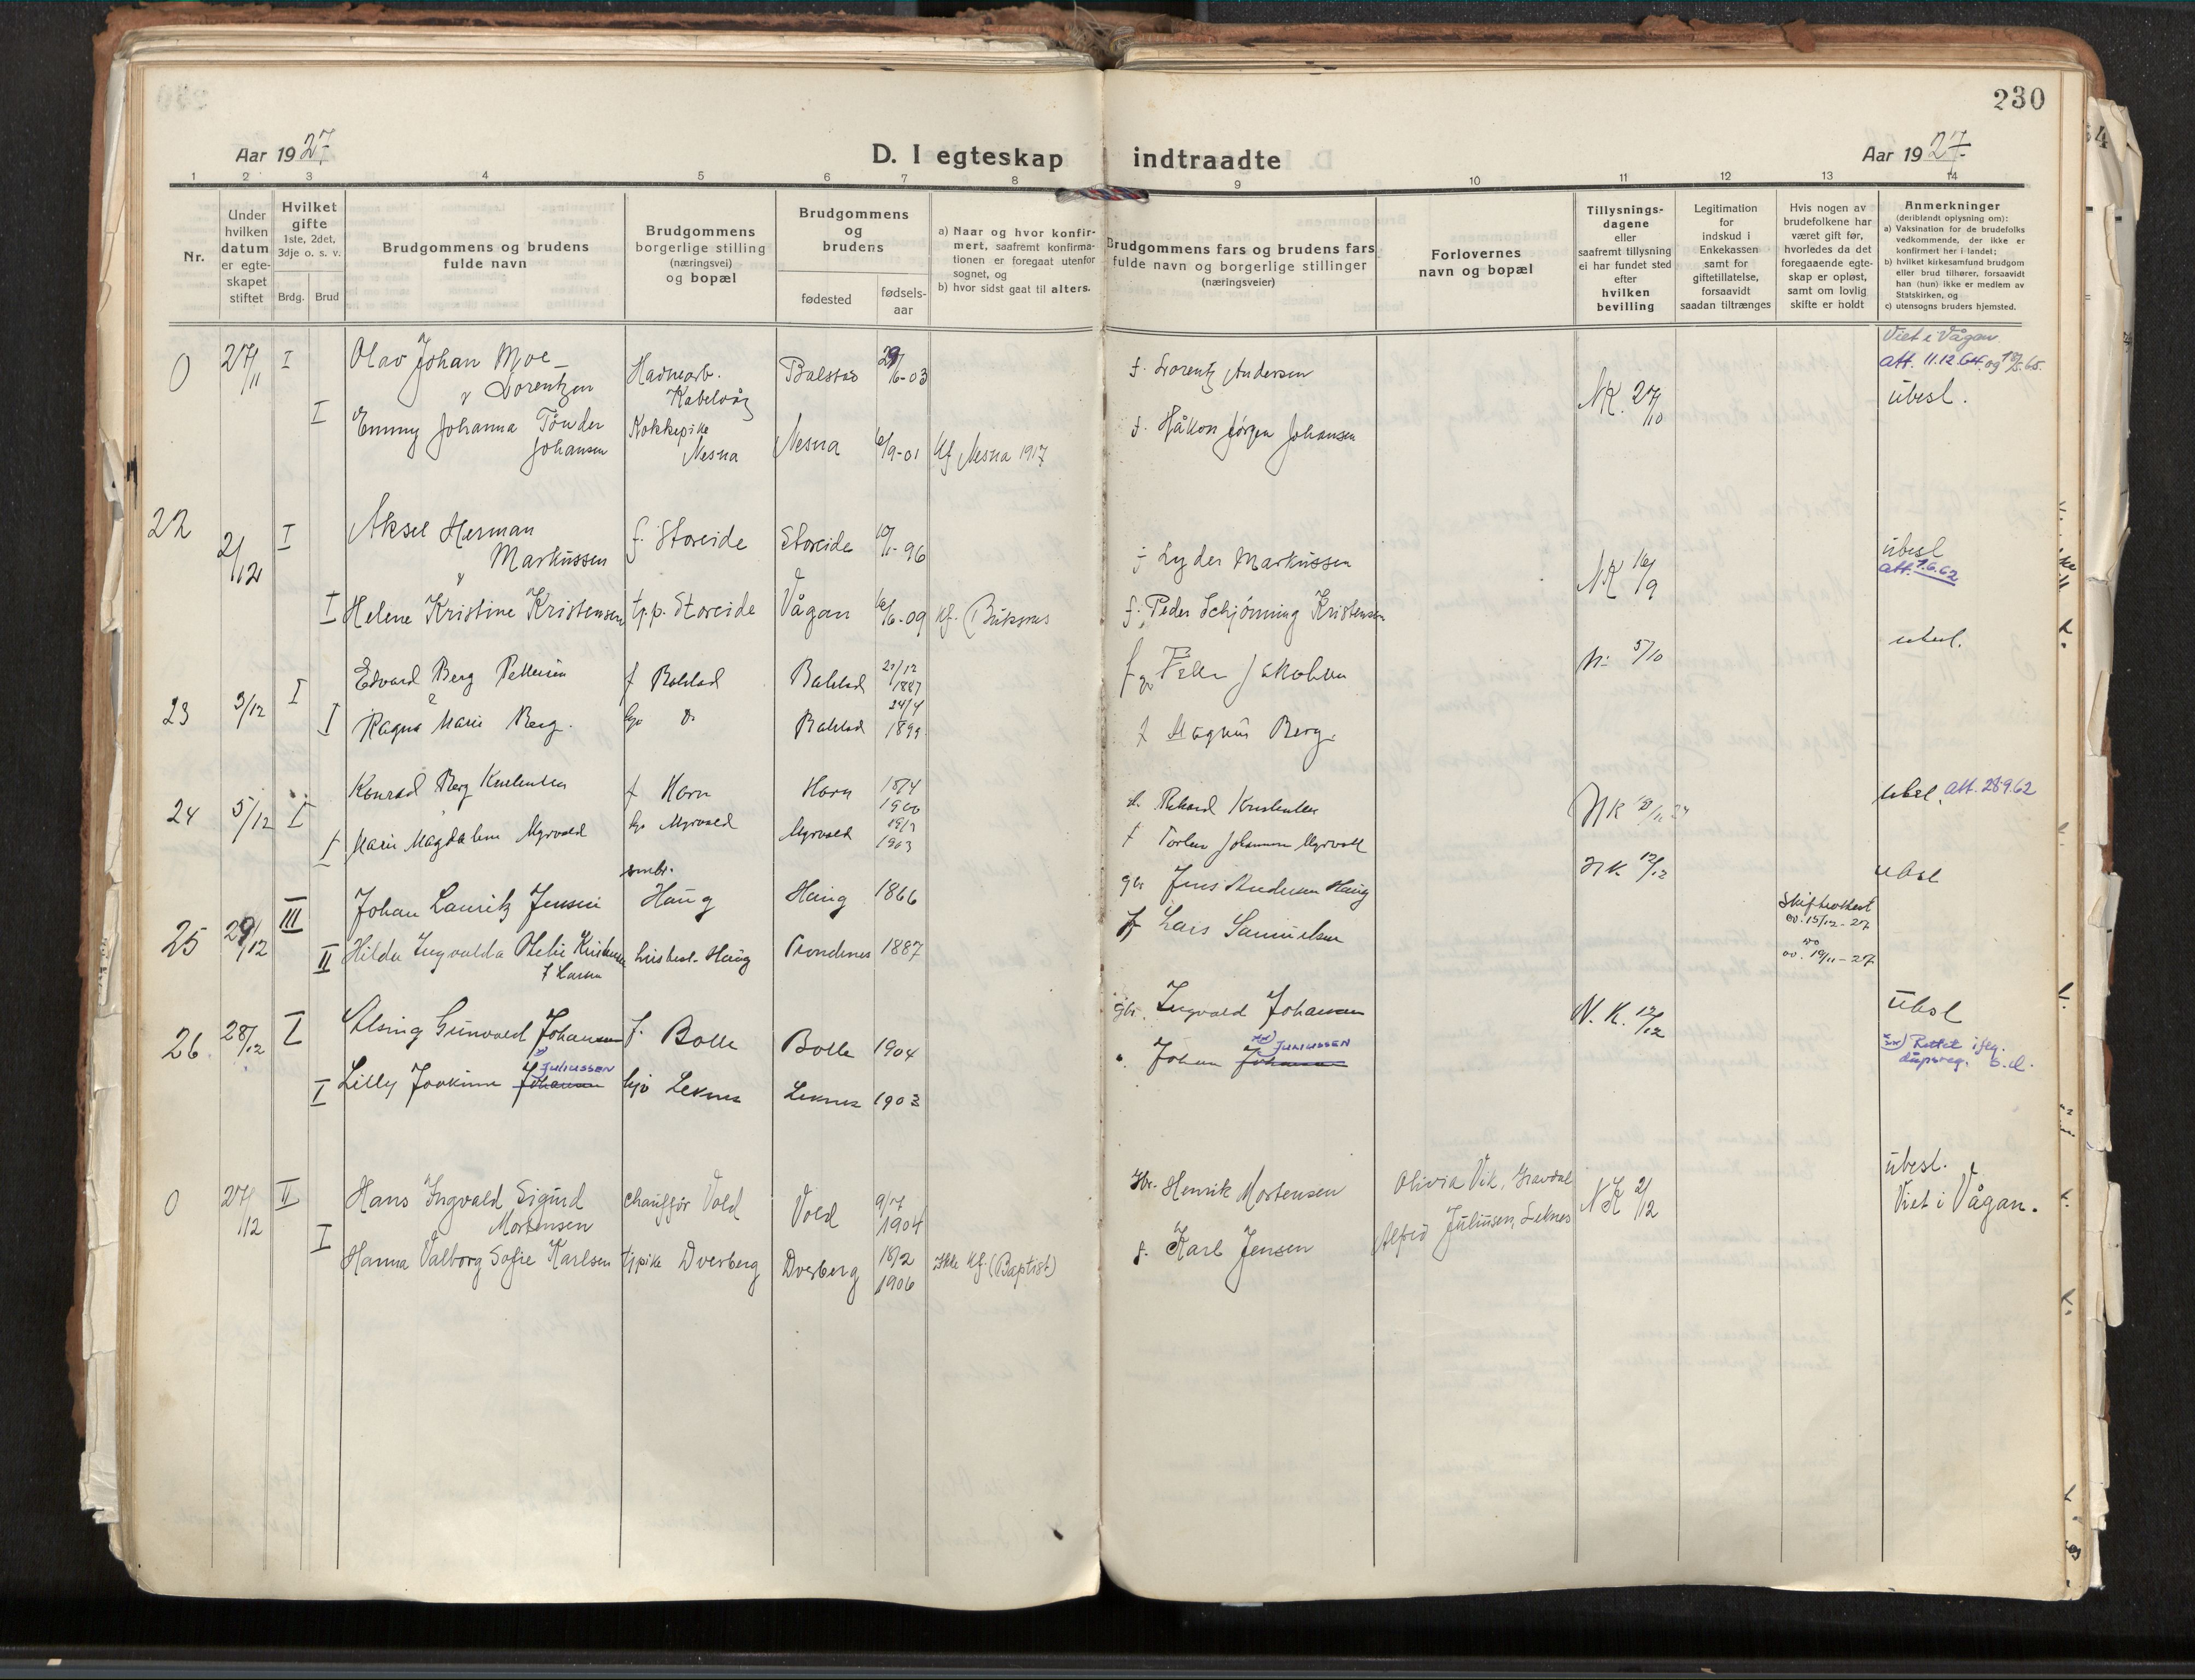 230
Aar 1927.
D. I egteskap indtraadte
Aar 1927.
1 2 3 4 5 6 7 8 9 10 11 12 13 14
Nr.
Under hvilken datum er egteskapet stiftet
Hvilket gifte 1ste, 2det, 3dje o. s. v.
Brdg. Brud
Brudgommens og brudens fulde navn
Brudgommens borgerlige stilling (næringsvei) og bopæl
Brudgommens og brudens
fødested
fødselsaar
a) Naar og hvor konfirmert, saafremt konfirmationen er foregaat utenfor sognet, og
b) hvor sidst gaat til alters.
Brudgommens fars og brudens fars fulde navn og borgerlige stillinger (næringsveier)
Forlovernes navn og bopæl
Tillysningsdagene eller saafremt tillysning ei har fundet sted efter hvilken bevilling
Legitimation for indskud i Enkekassen samt for giftetillatelse, forsaavidt saadan tiltrænges
Hvis nogen av brudefolkene har været gift før, hvorledes da det foregaaende egteskap er opløst, samt om lovlig skifte er holdt
Anmerkninger (deriblandt oplysning om):
a) Vaksination for de brudefolks vedkommende, der ikke er konfirmert her i landet;
b) hvilket kirkesamfund brudgom eller brud tilhører, forsaavidt han (hun) ikke er medlem av Statskirken, og
c) utensogns bruders hjemsted.
0 27/11 I Olav Johan Moe Lorentzen Havnearb. Kabelvåg Balstad 16-03 f. Lorentz Andersen NK. 27/10 Viet i Vågan. Att. 11.12.64. og
ubesl.
I Emmy Johanna Tönder Johansen Kokkepike Nesna Nesna 6/9-01 Kf Nesna 1917 f. Håkon Jørgen Johansen
22 2/12 I Aksel Herman Markussen f. Storeide Storeide 96 f Lyder Markussen NK 16/9 ubesl Att. 1.6.62
I Helene Kristine Kristensen tj.p. Storeide Vågan 16/6-09 Kf. Buksnes f. Peder Schjönning Kristensen
23 3/12 I Edvard Berg Pettersen f Balstad Balstad 21/12 1887 f Peder Jakobsen N: 5/10 ubesl.
I Ragna Marie Berg. Balstad 24/4 1899 f Magnus Berg.
24 5/12 I Konrad Berg Kristensen f Horn Horn 18/4 1900 Rikard Kristensen NK ubsl. Att. 28.9.62
I Marie Magdalene Myrvold Myrvold Myrvold 19/3 1903 f Torlev Johannesen Myrvold
25 29/12 III Johan Lauritz Jensen smbr. Haug Haug 1866 gbr Jens Andersen Haug NK. 12/12 Skifteattest av. 15/12-27 ubsl
II Hilda Ingvalda Kristensen f Larsen husbest. Haug Trondenes 1887 f Lars Samuelsen av. 19/11-27
26 28/12 I Gunvald Johansen f. Bolle Bolle 1904 gbr. Ingvald Johansen N. K. 12/12 ubsl
I Lilly Joakime Johansen JULIUSSEN hjv Leknes Leknes 1903 Johan Johansen xx) JULIUSSEN xx) Rettet iflg. dåpsreg. s.d.
0 27/12 II Hans Ingvald Sigurd Mortensen chauffør Vold Vold 9/7 1904 Henrik Mortensen Olivia Vik, Gravdal NK 2/12 ubesl. Viet i Vågan.
I Hanna Valborg Sofie Karlsen tjpike Dverberg Dverberg 18/2 1906 Ikke Kf. (Baptist) f. Karl Jensen Alfred Juliusen, Leknes